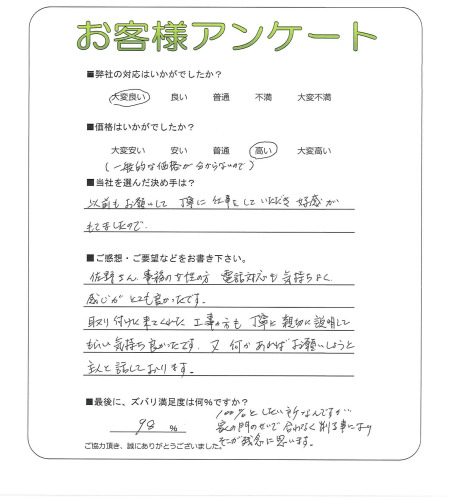 お客様アンケート
■弊社の対応はいかがでしたか？
大変良い 良い 普通 不満 大変不満
■価格はいかがでしたか？
大変安い 安い 普通 高い 大変高い
(一般的な価格が分からないので)
■当社を選んだ決め手は？
以前もお願いして 丁寧に仕事をしていただき 好感が
もてましたので。
■ご感想・ご要望などをお書き下さい。
佐野さん、事務の女性の方 電話対応も気持ちよく
感じがとても良かったです。
取り付けに来てくれた工事の方も 丁寧に親切に説明して
もらい気持ち良かったです。又 何かあればお願いしようと
主人と話しております。
■最後に、ズバリ満足度は何％ですか？
98 ％
100％としたい所なんですが
家の門のせいで合わなく削る事になり
そこが残念に思います。
ご協力頂き、誠にありがとうございました。